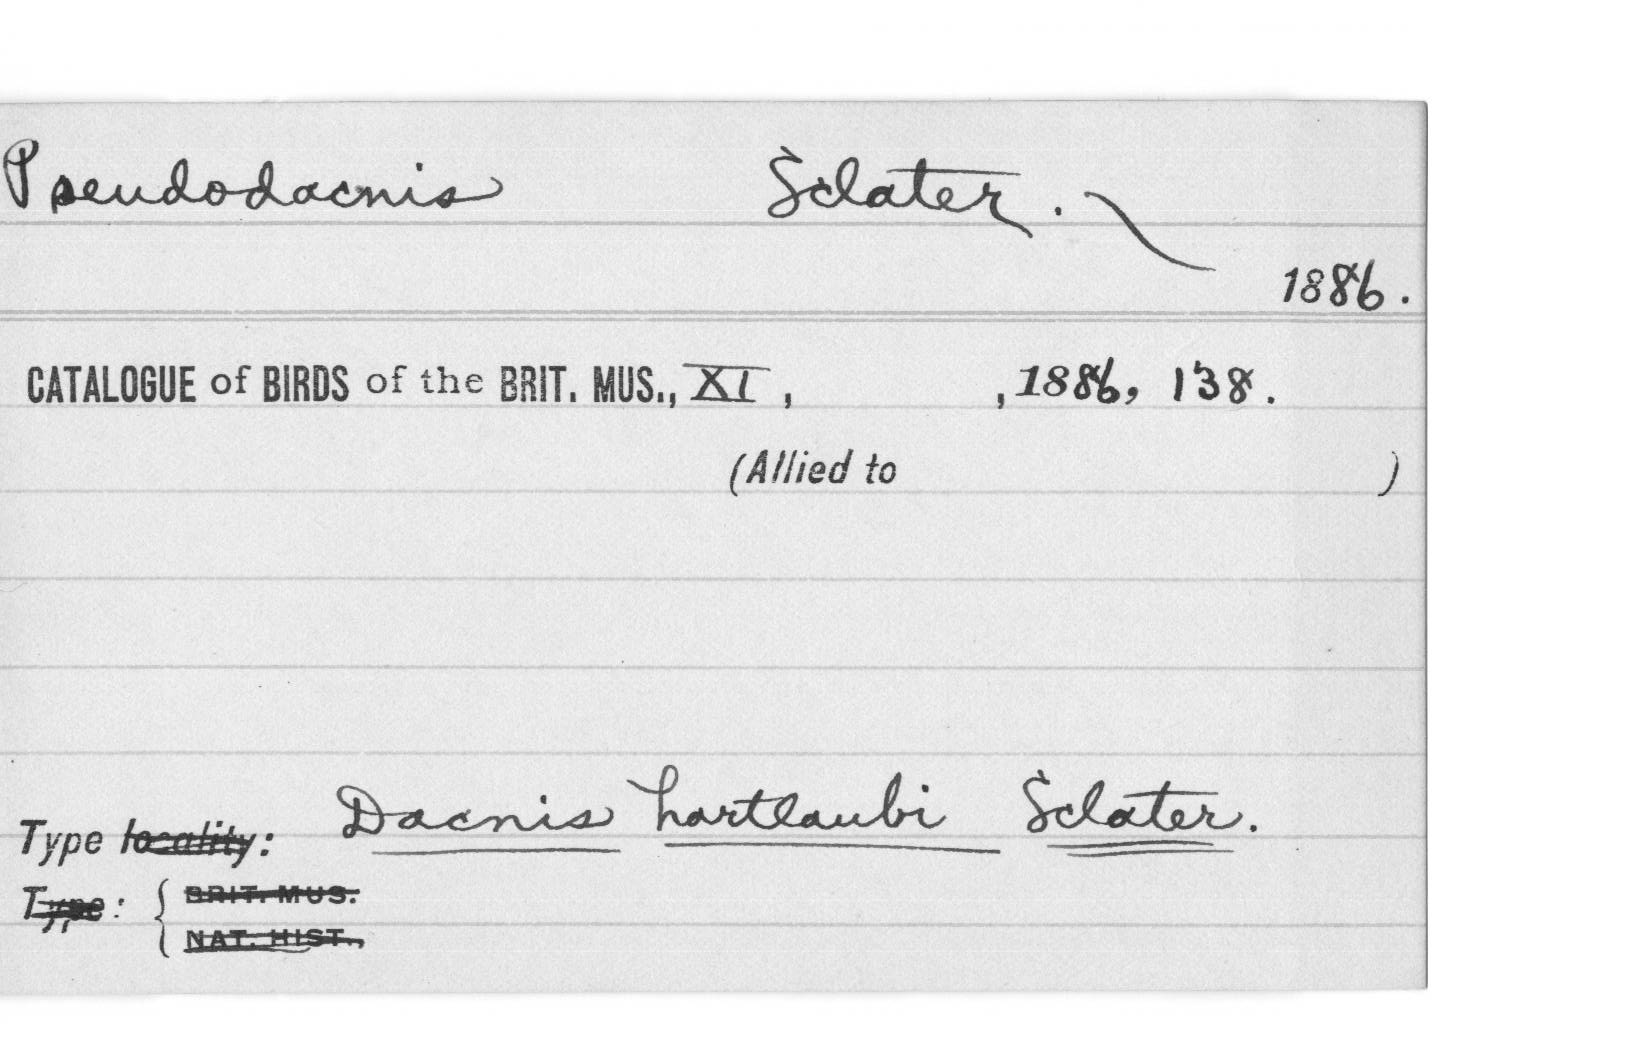 Pseudodacnis Sclater.
1886.
CATALOGUE of BIRDS of the BRIT. MUS., XI, , 1886, 138.
(Allied to )
Type locality: Dacnis hartlaubi Sclater.
Type: { BRIT. MUS.
NAT. HIST.,